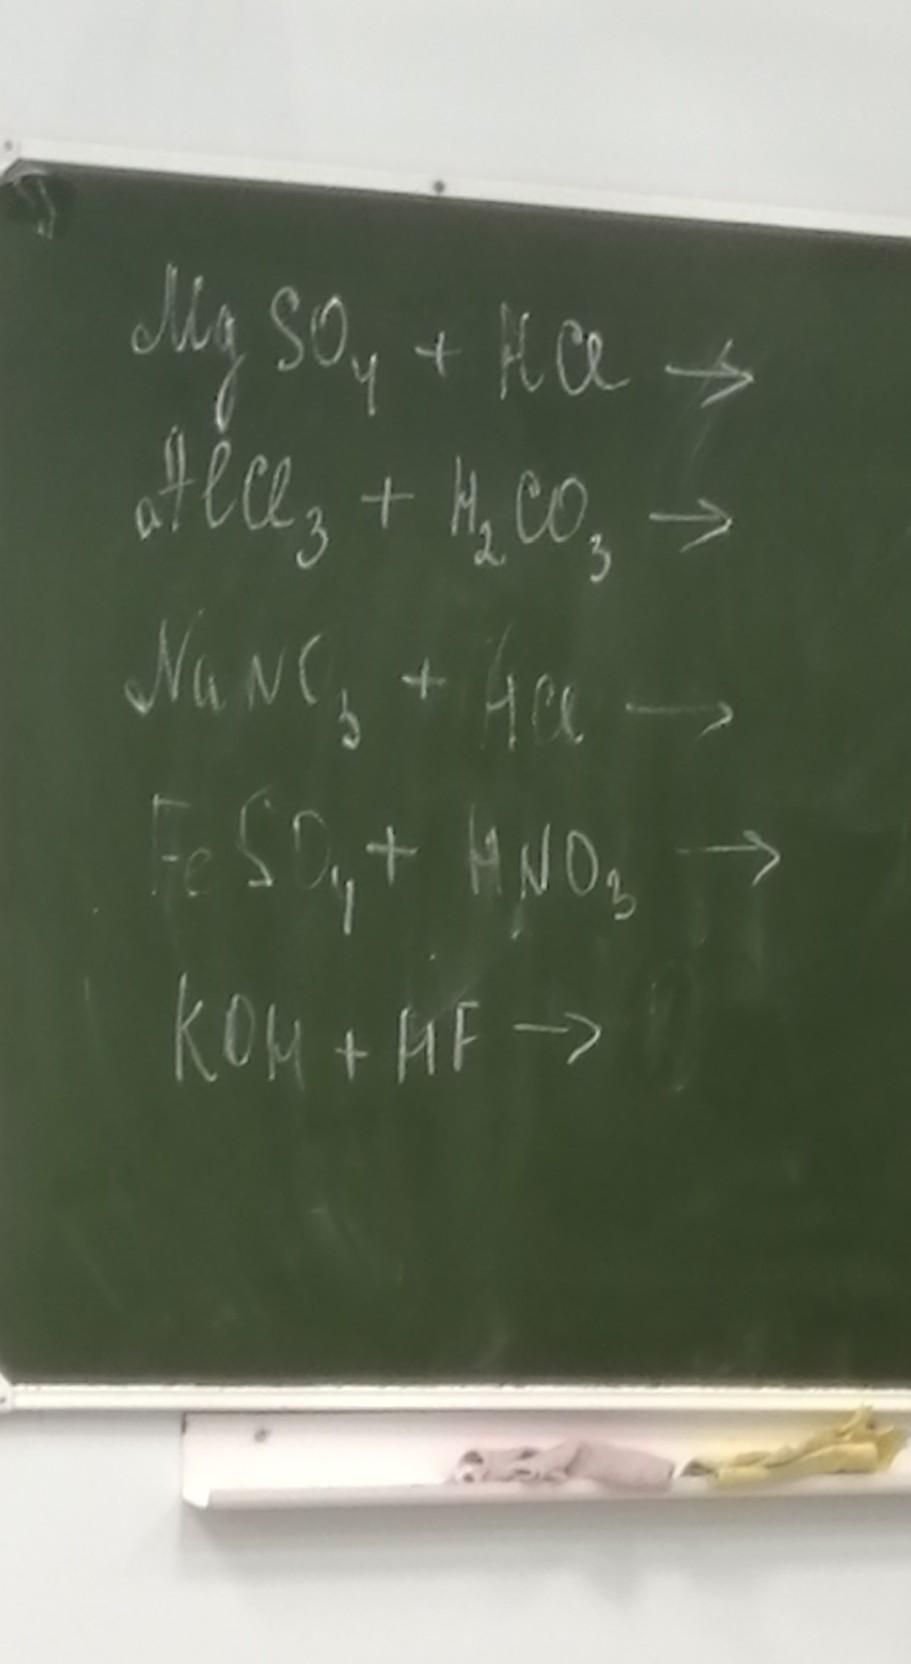 MgSO₄ + HCl →
AlCl₃ + H₂CO₃ →
NaNO₃ + HCl →
FeSO₄ + HNO₃ →
KOH + HF →